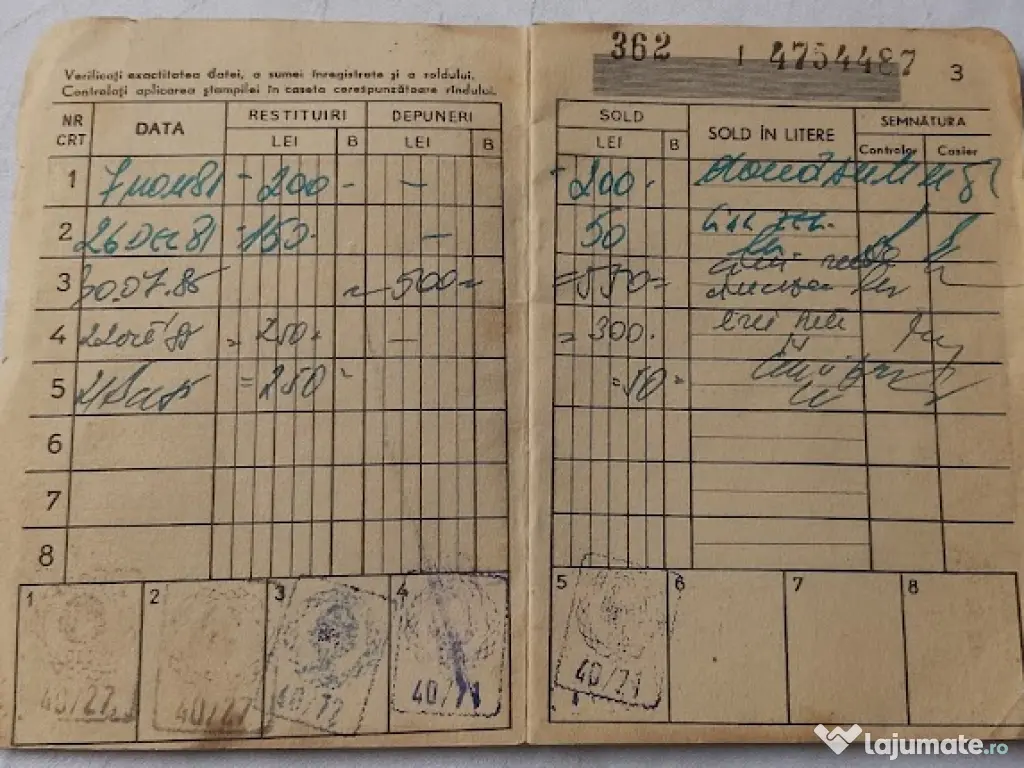 Verificați exactitatea datei, a sumei înregistrate și a soldului.
Controlați aplicarea ștampilei în caseta corespunzătoare rîndului.
NR CRT DATA RESTITUIRI LEI B DEPUNERI LEI B
1 7 noem 81 - 200 - —
2 26 DEC 81 = 150 - —
3 30.07.85 = 500 =
4 = 250 . —
5 = 250 =
6
7
8
1 2 3 4
40/27 40/27 40/72 40/71
362 1 4754487 3
SOLD LEI B SOLD ÎN LITERE SEMNĂTURA Controlor Casier
- 200 . două sute
50
= 550 =
= 300 . trei sute
= 50 =
5 6 7 8
40/71
Lajumate.ro